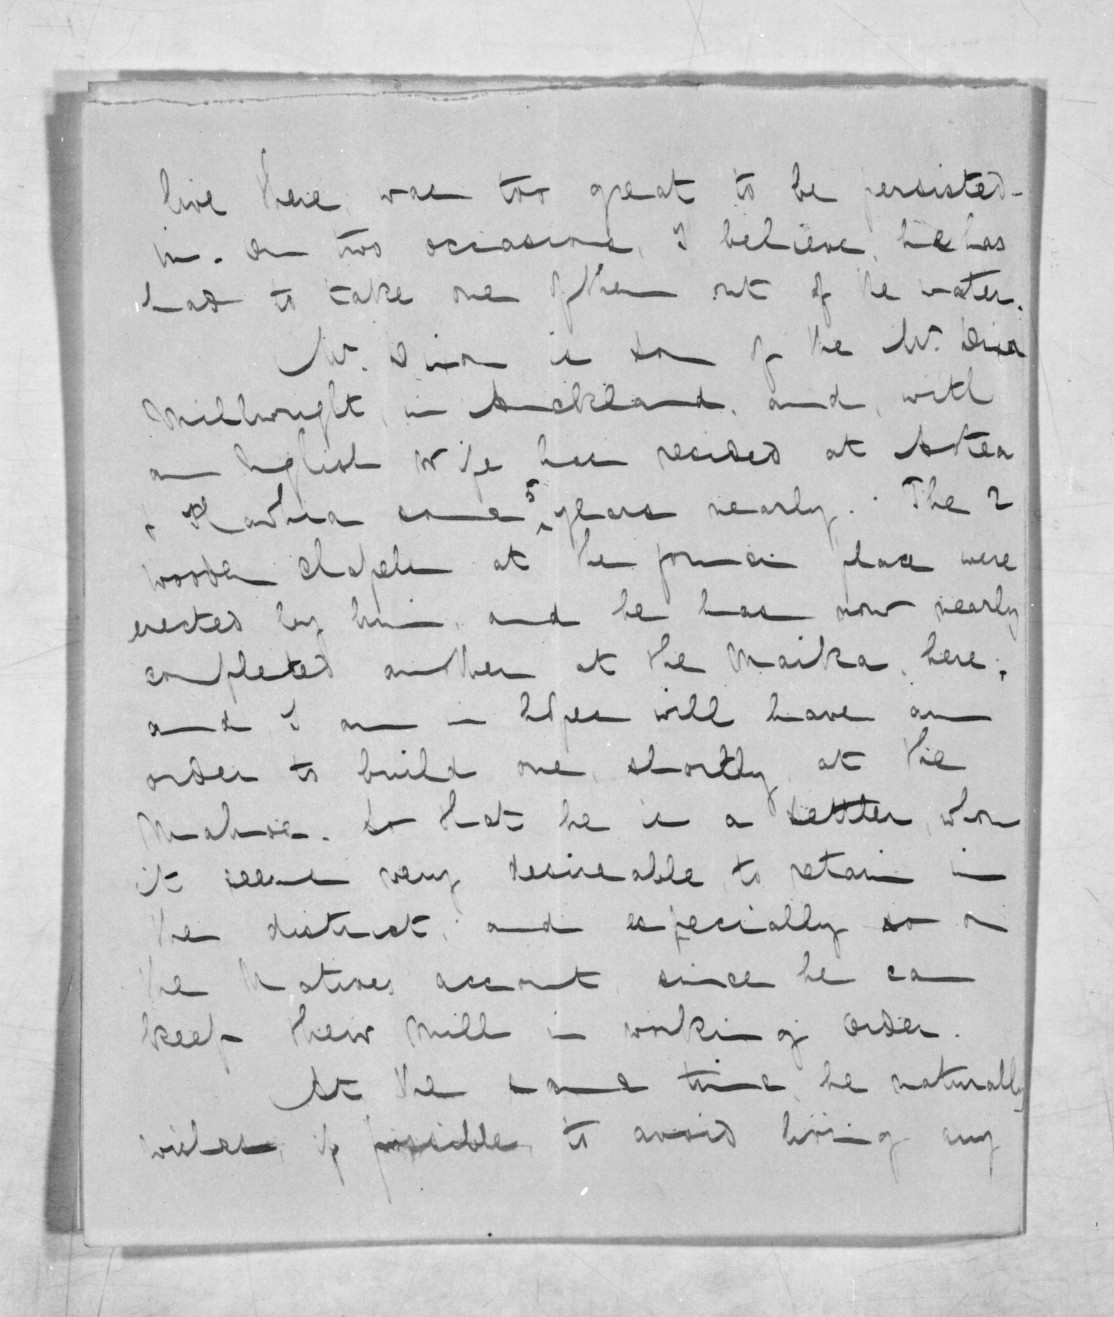 live there, was too great to be persisted
in. On two occasions, I believe, he has
had to take one of them out of the water.
Mr. Dixon is son of the Mr. Dixon
Millwright, in Auckland, and, with
an English Wife has resided at Aotea
& Kawhia some 5 years nearly. The 2
wooden chapels at the former place were
erected by him, and he has now nearly
completed another at the Maika, here;
and I am in hopes will have an
order to build one, shortly, at the
Mahoe. So that he is a settler, whom
it seems very desireable, to retain in
the district, and especially so on
the Natives account, since he can
keep their Mill in working order.
At the same time he naturally
wishes, if possible, to avoid living any